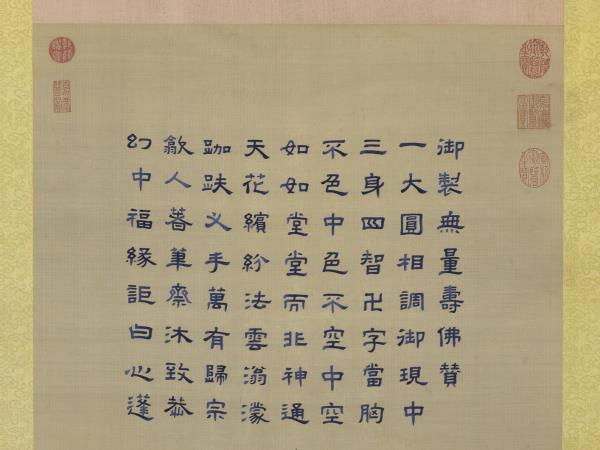 御製無量壽佛贊
一大圓相調御現中
三身四智卍字當胸
不色中色不空中空
如如堂堂而非神通
天花繽紛法雲滃濛
跏趺叉手萬有歸宗
歙人著筆齋沐致恭
幻中福緣詎曰心蓬